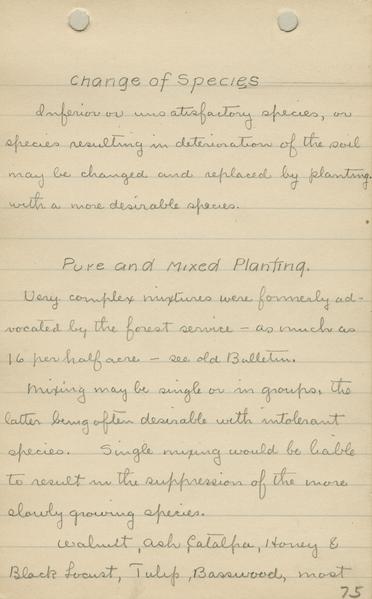 Change of Species
Inferior or unsatisfactory species, or
species resulting in deterioration of the soil
may be changed and replaced by planting
with a more desirable species.
Pure and Mixed Planting.
Very complex mixtures were formerly ad-
vocated by the forest service - as much as
16 per half acre - see old Bulletin.
Mixing may be single or in groups, the
latter being often desirable with intolerant
species. Single mixing would be liable
to result in the suppression of the more
slowly growing species.
Walnut, Ash, Catalpa, Honey &
Black Locust, Tulip, Basswood, most
75